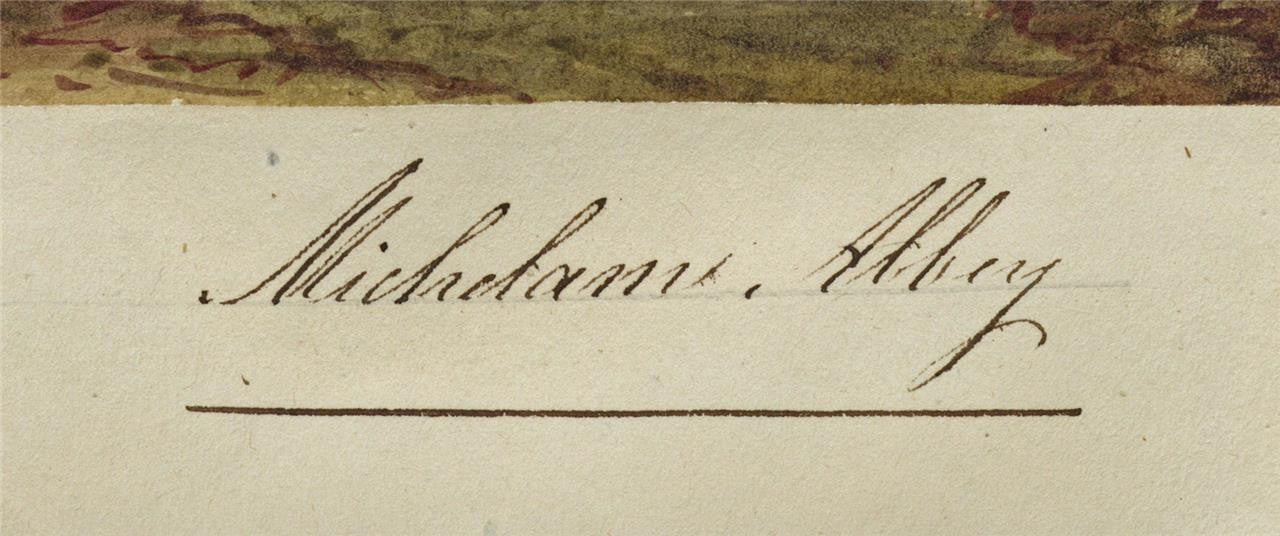 Michelam Abbey